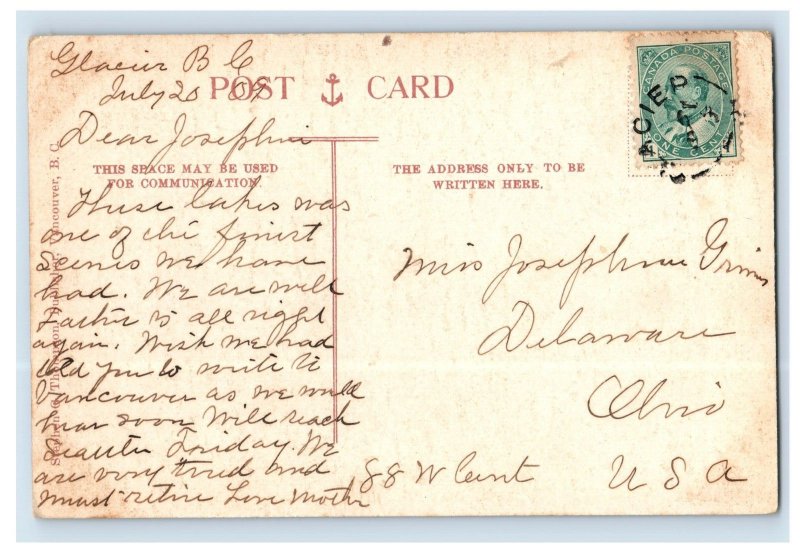 Glacier B C
July 20 07
POST CARD
Dear Josephine
THIS SPACE MAY BE USED
FOR COMMUNICATION.
These lakes was
one of the finest
scenes we have
had. We are well
Father is all right
again. Wish we had
told you to write to
Vancouver as we would
hear soon Will reach
Seattle Friday We
are very tired and
must retire Love Mother
THE ADDRESS ONLY TO BE
WRITTEN HERE.
Miss Josephine
Delaware
Ohio
88 W Cent
U S A
CANADA POSTAGE
ONE CENT
Vancouver, B. C.